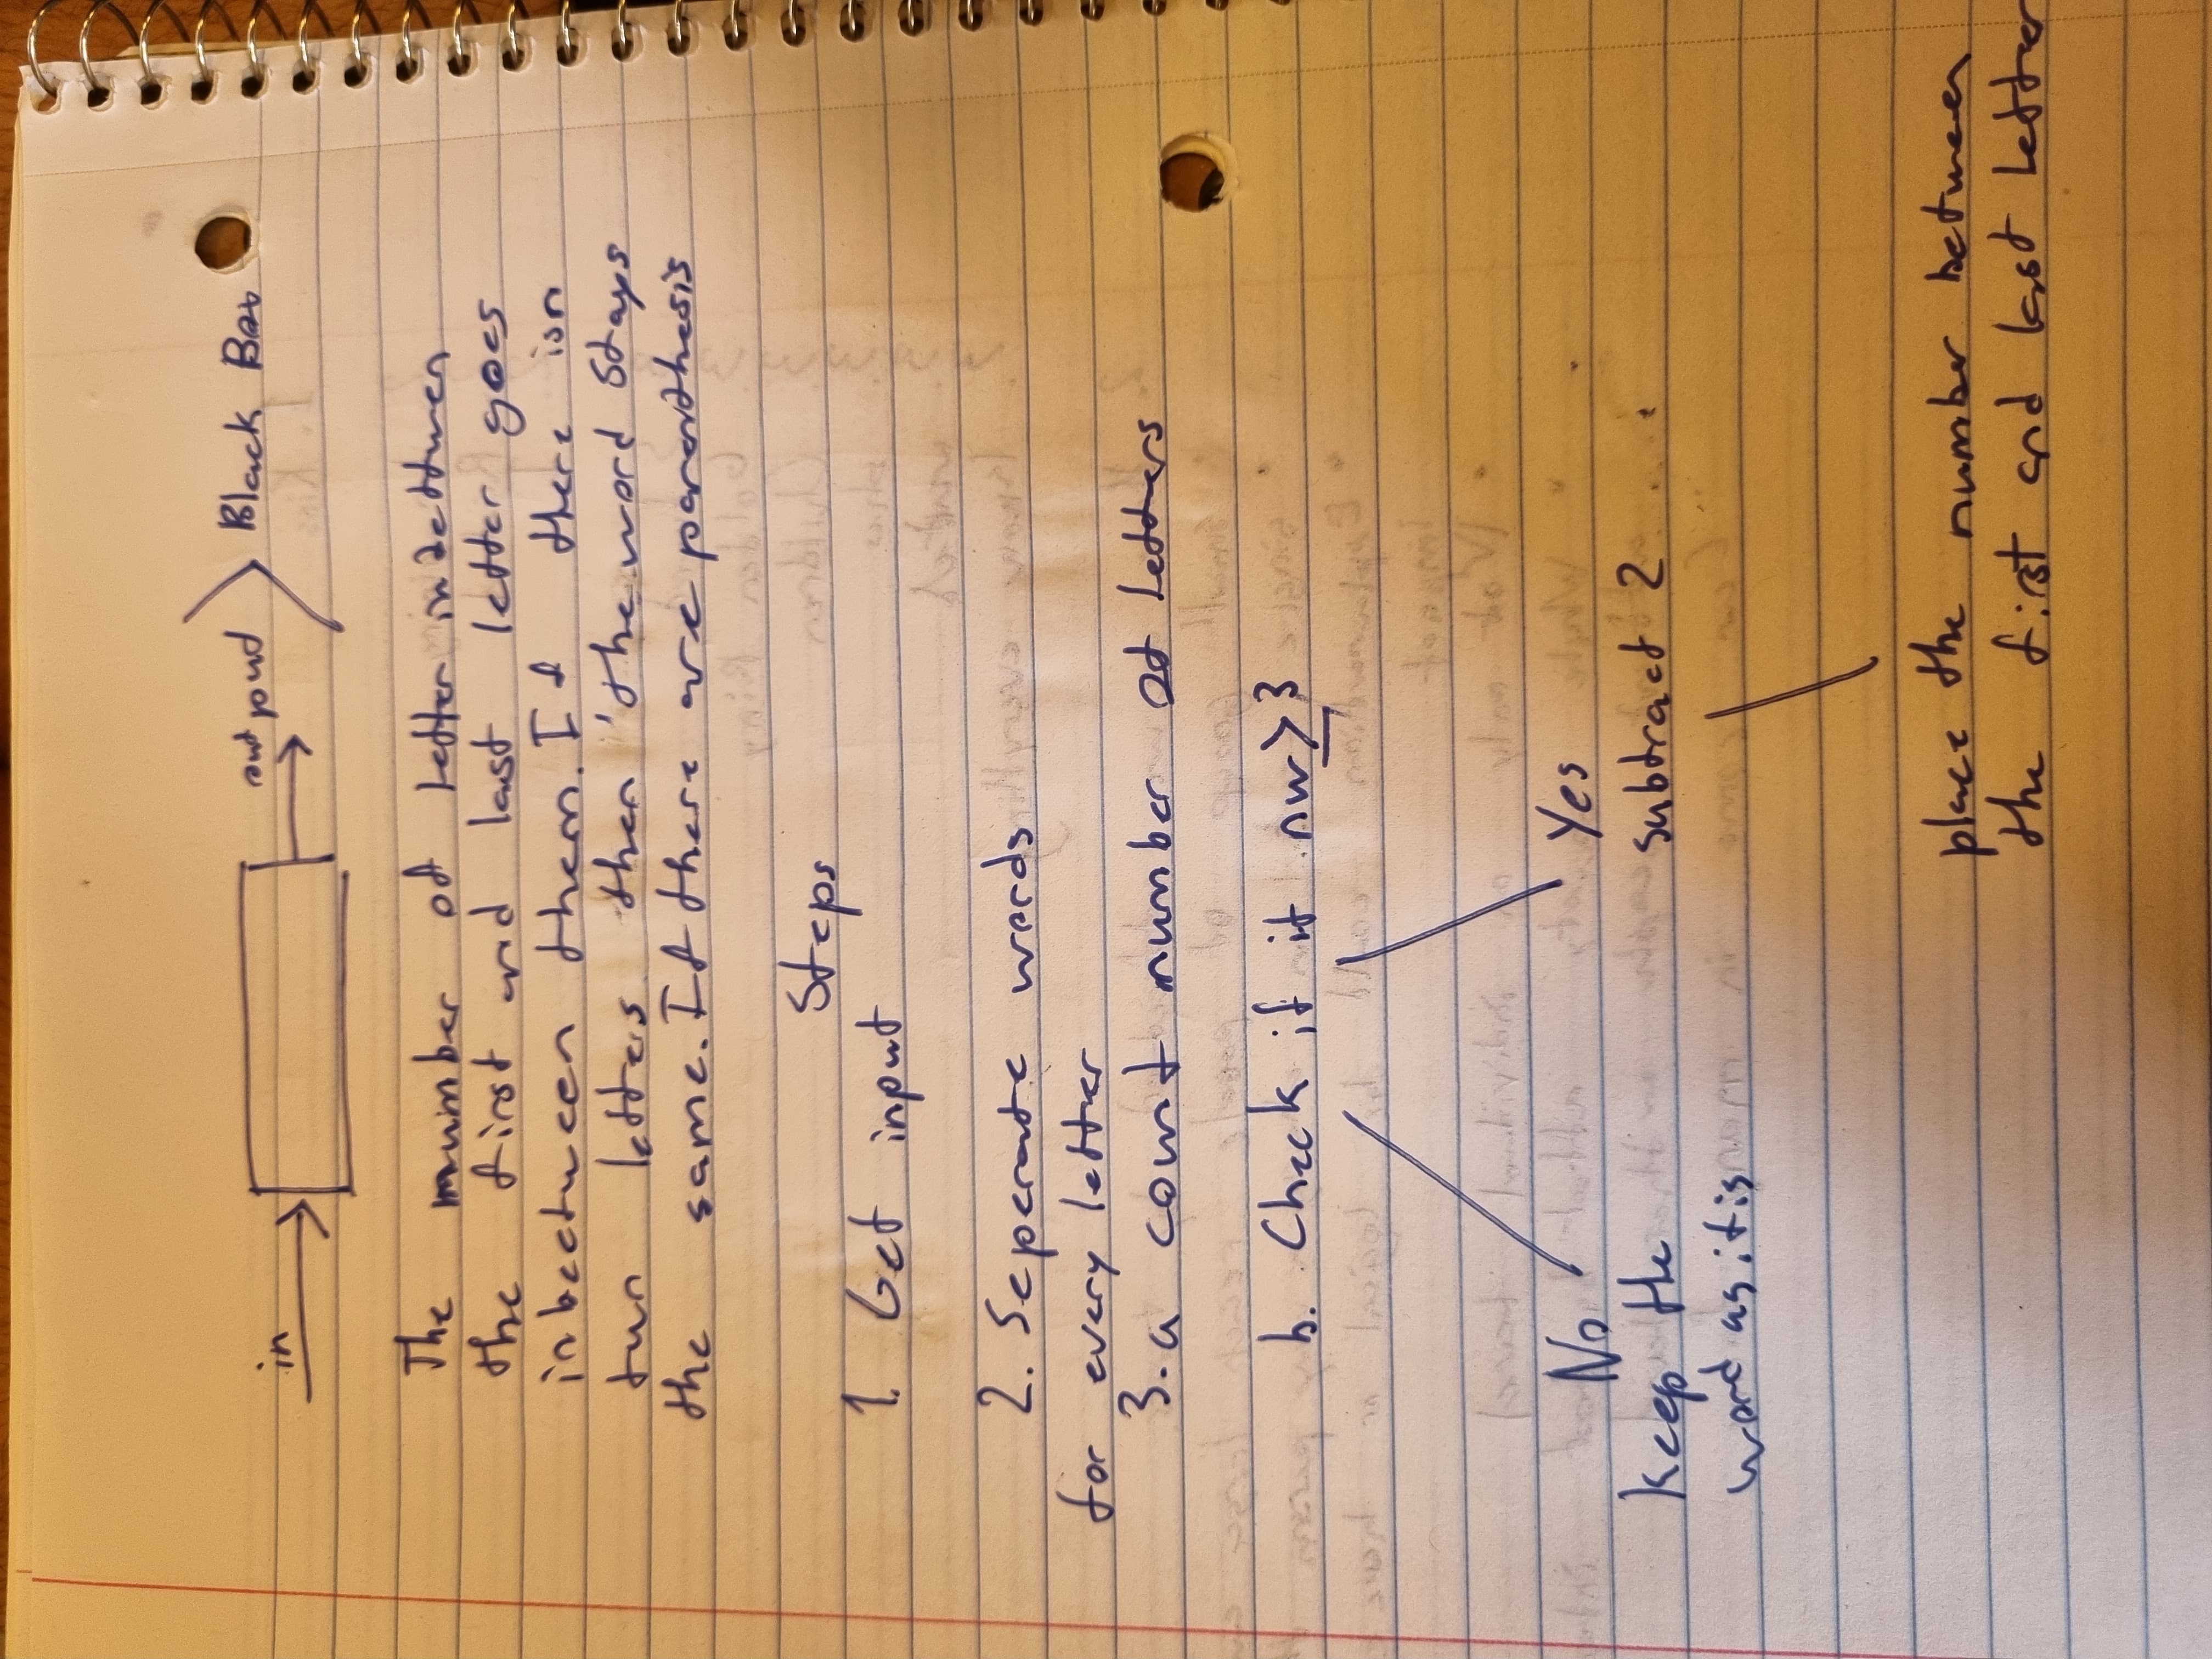 in output Black Box
The number of letter inbetween
the first and last letter goes
inbetween them. If there isn
two letters then the word stays
the same. If there are parenthesis
Steps
1. Get input
2. Seperate words
for every letter
3. a count number of letters
b. Check if it nw ≥ 3
No Yes
keep the subtract 2
word as it is
place the number between
the first and last letter